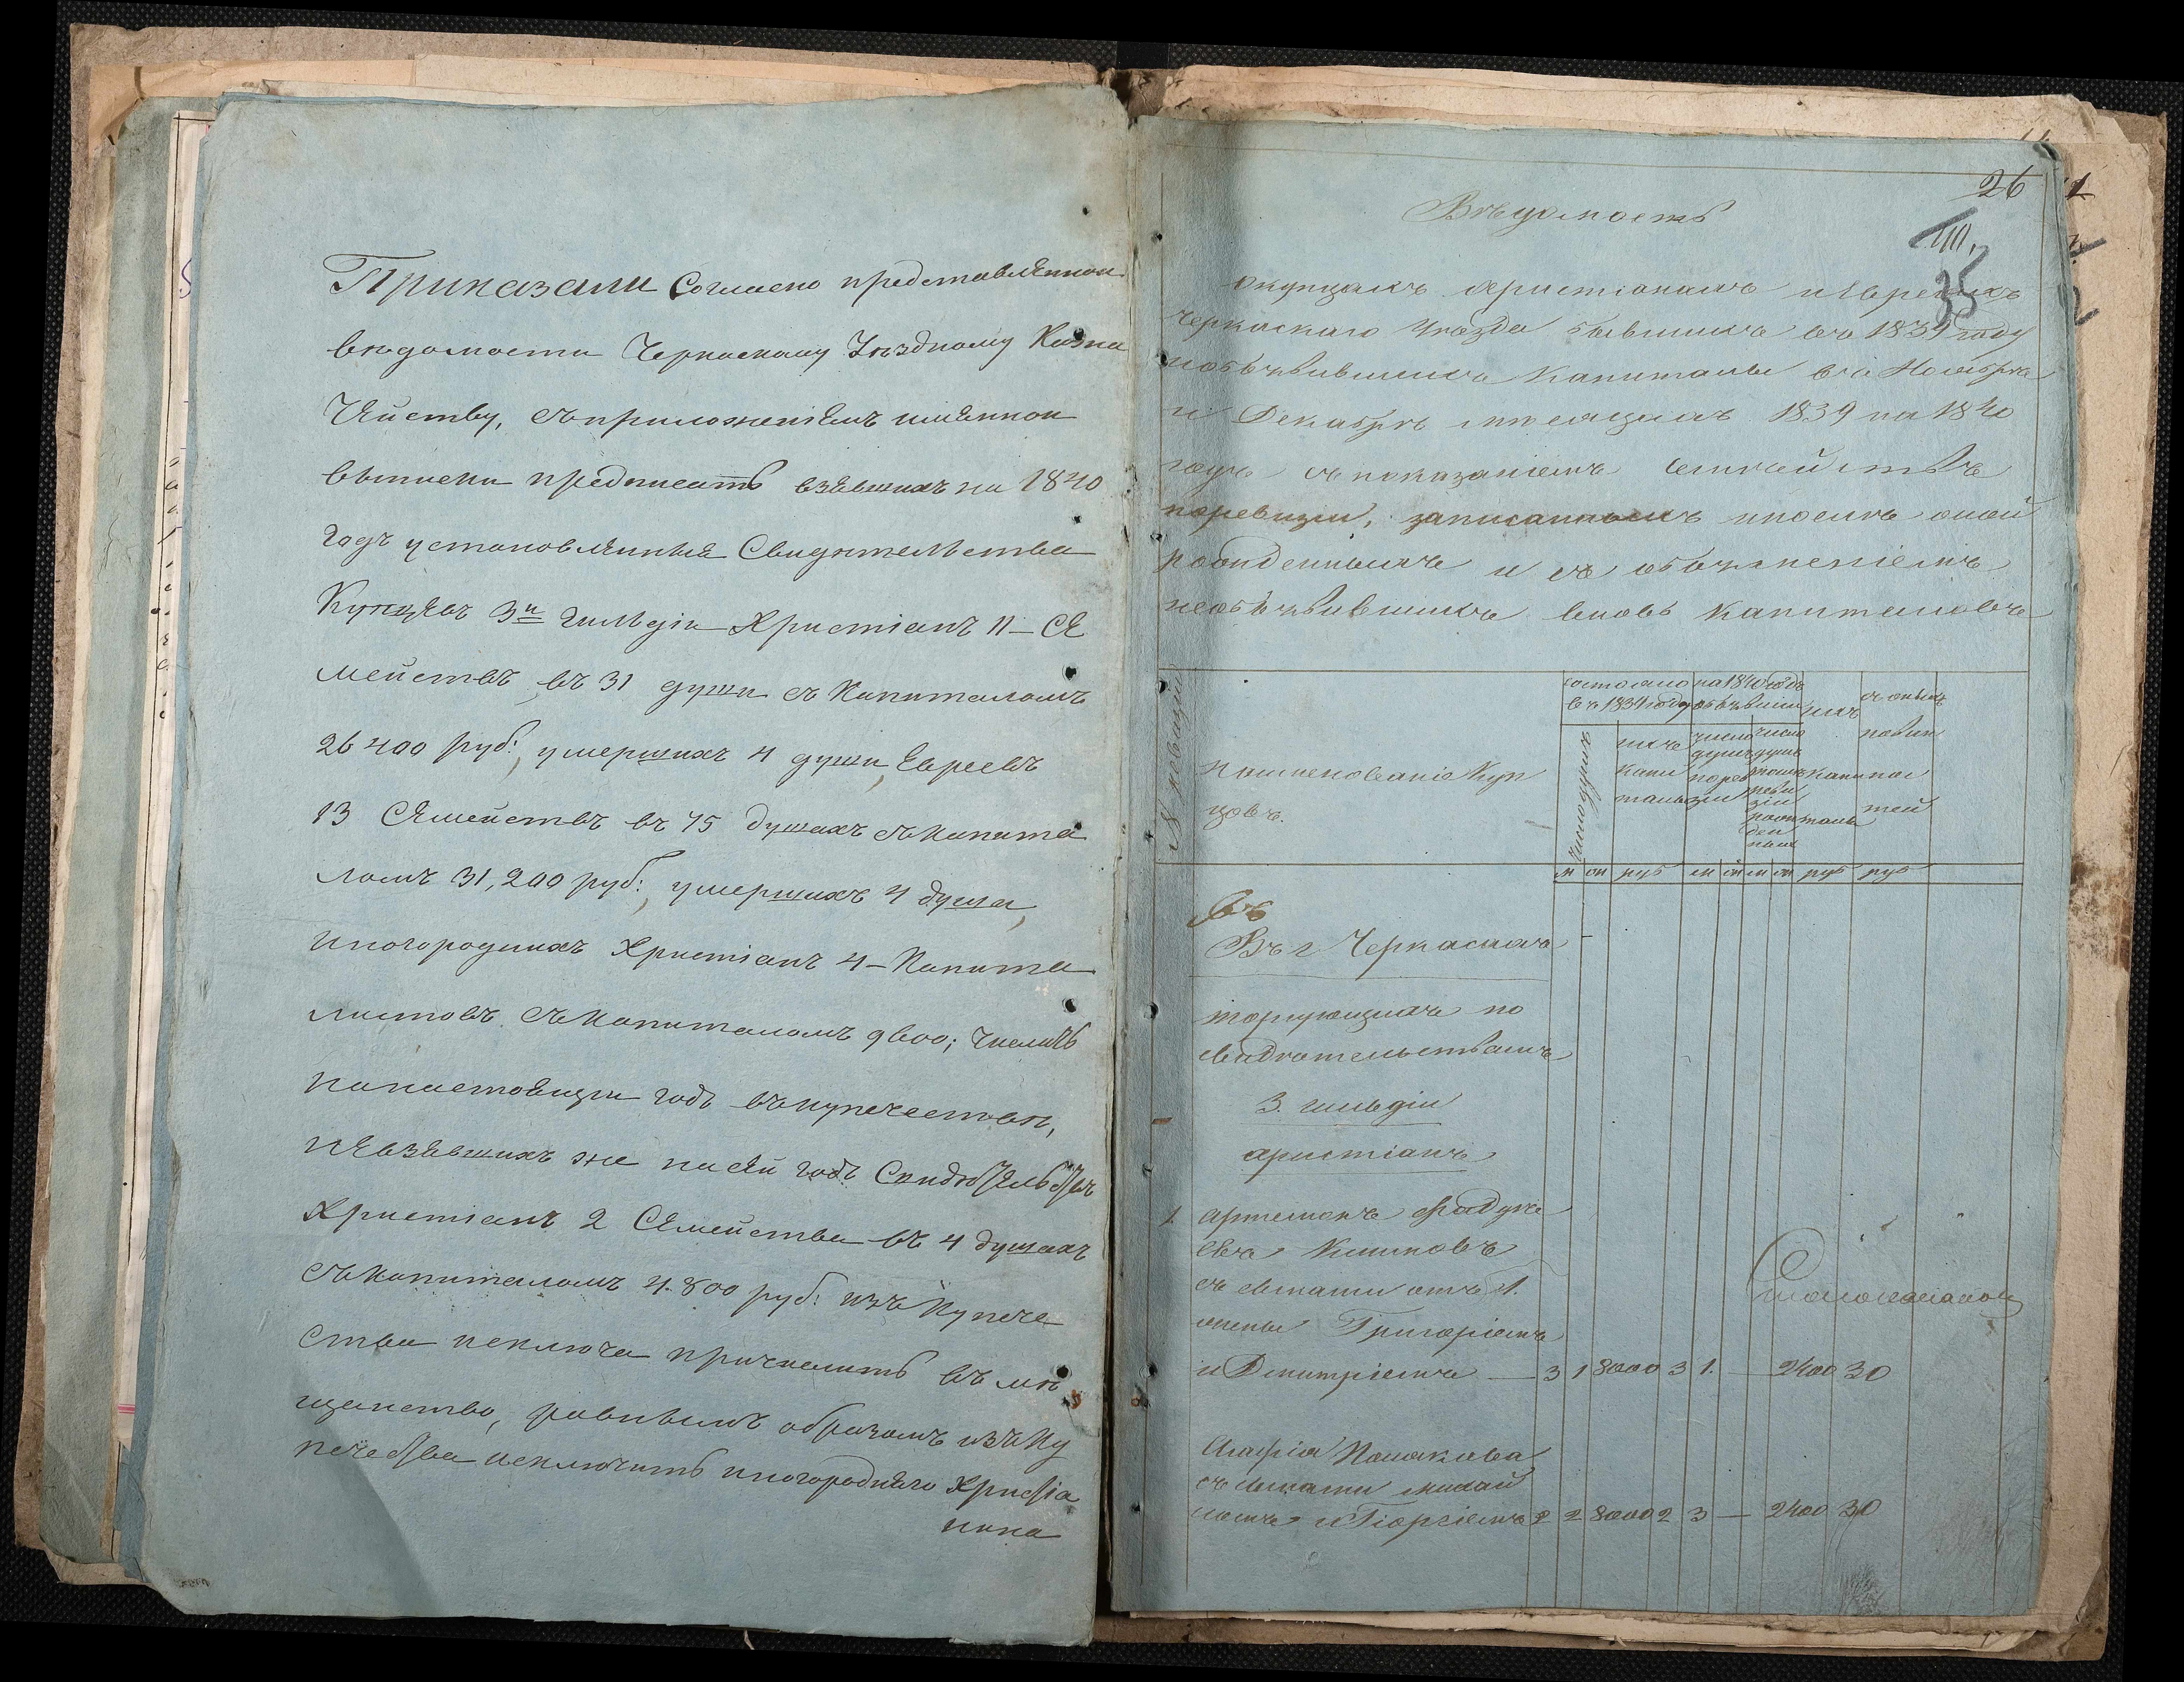 Приказали Согласно представленной
ведомости Черкаскому Уѣздному Казна
Чейству, съ приложеніемъ имянной
выписки предписать взявшихъ на 1840
годъ установленныя Свидѣтельства
Купцевъ 3й гильдіи Христіанъ 11 – Се
мействъ въ 31 души съ Капиталомъ
26400 руб: умершихъ 4 души, Евреевъ
13 Семействъ въ 75 душахъ съ капита
ломъ 31,200 руб:, умершихъ 4 душа,
Иногородныхъ Христіанъ 4 – Капита
листовъ съ капиталомъ 9600; Числить
на настоящій годъ въ купечествѣ,
невзявшихъ же на сей годъ Свидѣтельствъ
Христіанъ 2 Семейства въ 4 душахъ
съ капиталомъ 4.800 руб: изъ Купече
ства исключа причислить въ мѣ
щанство, равнымъ образомъ изъ Ку
печества исключить иногороднаго Христіа
нина
26
Вѣдомость
35
О купцахъ христіанахъ и Евреяхъ
Черкаскаго Уѣзда бывшихъ въ 1839 году
и объявившихъ Капиталы въ Ноябрѣ
и Декабрѣ мѣсяцахъ 1839 на 1840
годъ съ показаніемъ семействъ
по ревизіи, записанныхъ и послѣ оной
рожденныхъ и съ объясненіемъ
необъявившихъ вновь Капиталовъ
Наименованіе Куп
цовъ.
Число душъ
состояло въ 1839 году
на 1840 годъ объявили
ихъ капи
талы
число душъ по ревизіи
число душъ
капи
талы
съ оныхъ
повин
ностей
м ж руб м ж м ж руб руб
Въ
Въ г Черкасахъ
торгующихъ по
свидѣтельствамъ
3. гильдіи
христіанъ
1. Артемонъ
съ
Григоріемъ
и Дмитріемъ — 3 1 8000 3 1. — 2400 30
съ Михай
ломъ и Георгіемъ 2 2 8000 2 3 — 2400 30